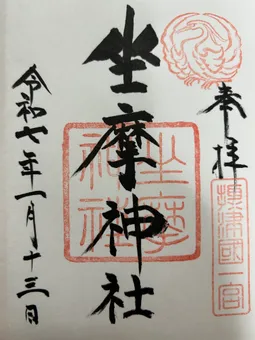 奉拝
摂津國一宮
坐摩神社
坐摩
神社
令和七年一月十三日